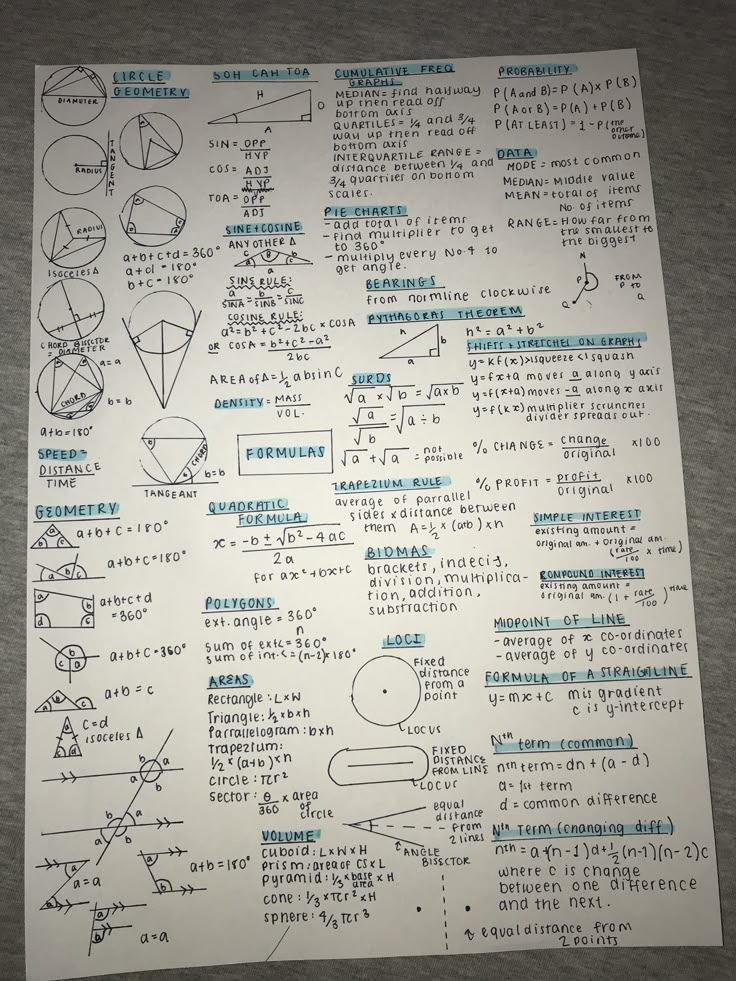 CIRCLE
GEOMETRY
DIAMETER
RADIUS
TANGENT
RADIUS
ISOCELES Δ
a+b+c+d = 360°
a+d = 180°
b+c = 180°
CHORD BISECTOR
= DIAMETER
a = a
b = b
CHORD
a+b = 180°
CHORD
b = b
TANGEANT
SPEED =
DISTANCE
TIME
GEOMETRY
a+b+c = 180°
a+b+c = 180°
a+b+c+d
= 360°
a+b+c = 360°
a+b = c
c = d
isoceles Δ
a = a
a+b = 180°
a = a
SOH CAH TOA
H
O
A
SIN = OPP
HYP
COS = ADJ
HYP
TOA = OPP
ADJ
SINE+COSINE
ANY OTHER Δ
SINE RULE:
a = b = c
SINA SINB SINC
COSINE RULE:
a² = b² + c² - 2bc × COSA
OR COSA = b² + c² - a²
2bc
AREA of Δ = ½ absinC
DENSITY = MASS
VOL.
FORMULAS
QUADRATIC
FORMULA
x = -b ± √b² - 4ac
2a
for ax² + bx + c
POLYGONS
ext. angle = 360°
n
sum of ext < = 360°
sum of int. < = (n-2) × 180°
AREAS
Rectangle : L×W
Triangle : ½ × b × h
Parrallelogram : b×h
Trapezium :
½ × (a+b) × h
circle : πr²
sector : θ/360 × area of circle
VOLUME
cuboid : L×W×H
prism : area of CS × L
pyramid : ⅓ × base area × H
cone : ⅓ × πr² × H
sphere : 4/3 πr³
CUMULATIVE FREQ
GRAPHS
MEDIAN = find halfway
up then read off
bottom axis
QUARTILES = ¼ and ¾
way up then read off
bottom axis
INTERQUARTILE RANGE =
distance between ¼ and
¾ quartiles on bottom
scales.
PIE CHARTS
- add total of items
- find multiplier to get
to 360°
- multiply every No. to
get angle.
BEARINGS
from normline clockwise
PYTHAGORAS THEOREM
h
b
a
h² = a² + b²
SURDS
√a × √b = √a×b
√a = √a÷b
√b
√a + √a = not
possible
TRAPEZIUM RULE
average of parrallel
sides × distance between
them A = ½ × (a+b) × h
BIDMAS
brackets, indecis,
division, multiplica-
tion, addition,
substraction
LOCI
Fixed
distance
from a
point
LOCUS
FIXED
DISTANCE
FROM LINE
LOCUS
equal
distance
from
2 lines
ANGLE
BISSECTOR
PROBABILITY
P(A and B) = P(A) × P(B)
P(A or B) = P(A) + P(B)
P(AT LEAST) = 1 - P(the other outcome)
DATA
MODE = most common
MEDIAN = Middle value
MEAN = total of items
No. of items
RANGE = How far from
the smallest to
the biggest
N
P
Q
FROM
P TO
Q
SHIFTS + STRETCHES ON GRAPHS
y = kf(x) >1 squeeze <1 squash
y = fx + a moves a along y axis
y = f(x+a) moves -a along x axis
y = f(kx) multiplier scrunches
divider spreads out.
% CHANGE = change ×100
original
% PROFIT = profit ×100
original
SIMPLE INTEREST
existing amount =
original am. + original am.
(rate/100 × time)
COMPOUND INTEREST
existing amount =
original am. (1 + rate/100)time
MIDPOINT OF LINE
- average of x co-ordinates
- average of y co-ordinates
FORMULA OF A STRAIGHTLINE
y = mx + c m is gradient
c is y-intercept
Nth term (common)
nth term = dn + (a - d)
a = 1st term
d = common difference
Nth Term (changing diff.)
nth = a + (n-1)d + ½(n-1)(n-2)c
where c is change
between one difference
and the next.
equal distance from
2 points